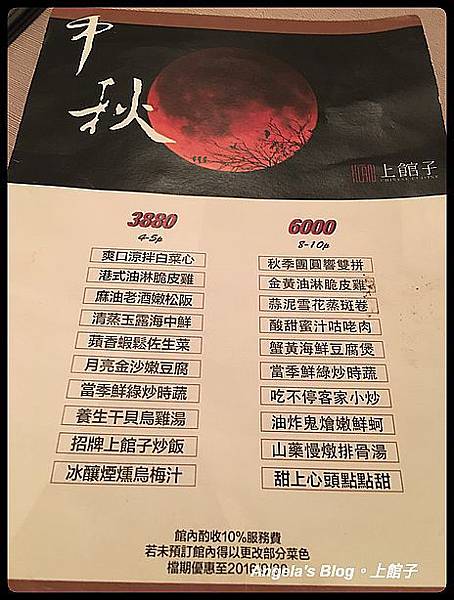 中秋
上館子
CHINESE CUISINE
3880
4-5p
爽口涼拌白菜心
港式油淋脆皮雞
麻油老酒嫩松阪
清蒸玉露海中鮮
蘋香蝦鬆佐生菜
月亮金沙嫩豆腐
當季鮮綠炒時蔬
養生干貝烏雞湯
招牌上館子炒飯
冰釀煙燻烏梅汁
6000
8-10p
秋季團圓響雙拼
金黃油淋脆皮雞
蒜泥雪花蒸斑卷
酸甜蜜汁咕咾肉
蟹黃海鮮豆腐煲
當季鮮綠炒時蔬
吃不停客家小炒
油炸鬼熗嫩鮮蚵
山藥慢燉排骨湯
甜上心頭點點甜
館內酌收10%服務費
若未預訂館內得以更改部分菜色
檔期優惠至2016/9/30
Angela's Blog。上館子